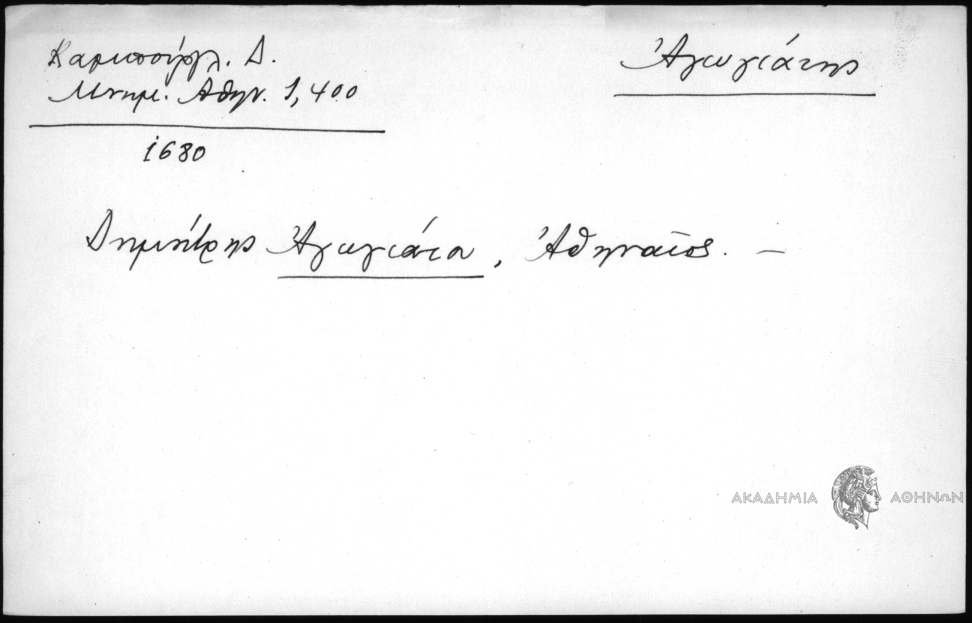 Καμπούργλ. Δ.
Μνημ. Ἀθην. 1,400
1680
Ἀγωγιάτης
Δημήτρης Ἀγωγιάτα, Ἀθηναῖος. —
ΑΚΑΔΗΜΙΑ ΑΘΗΝΩΝ